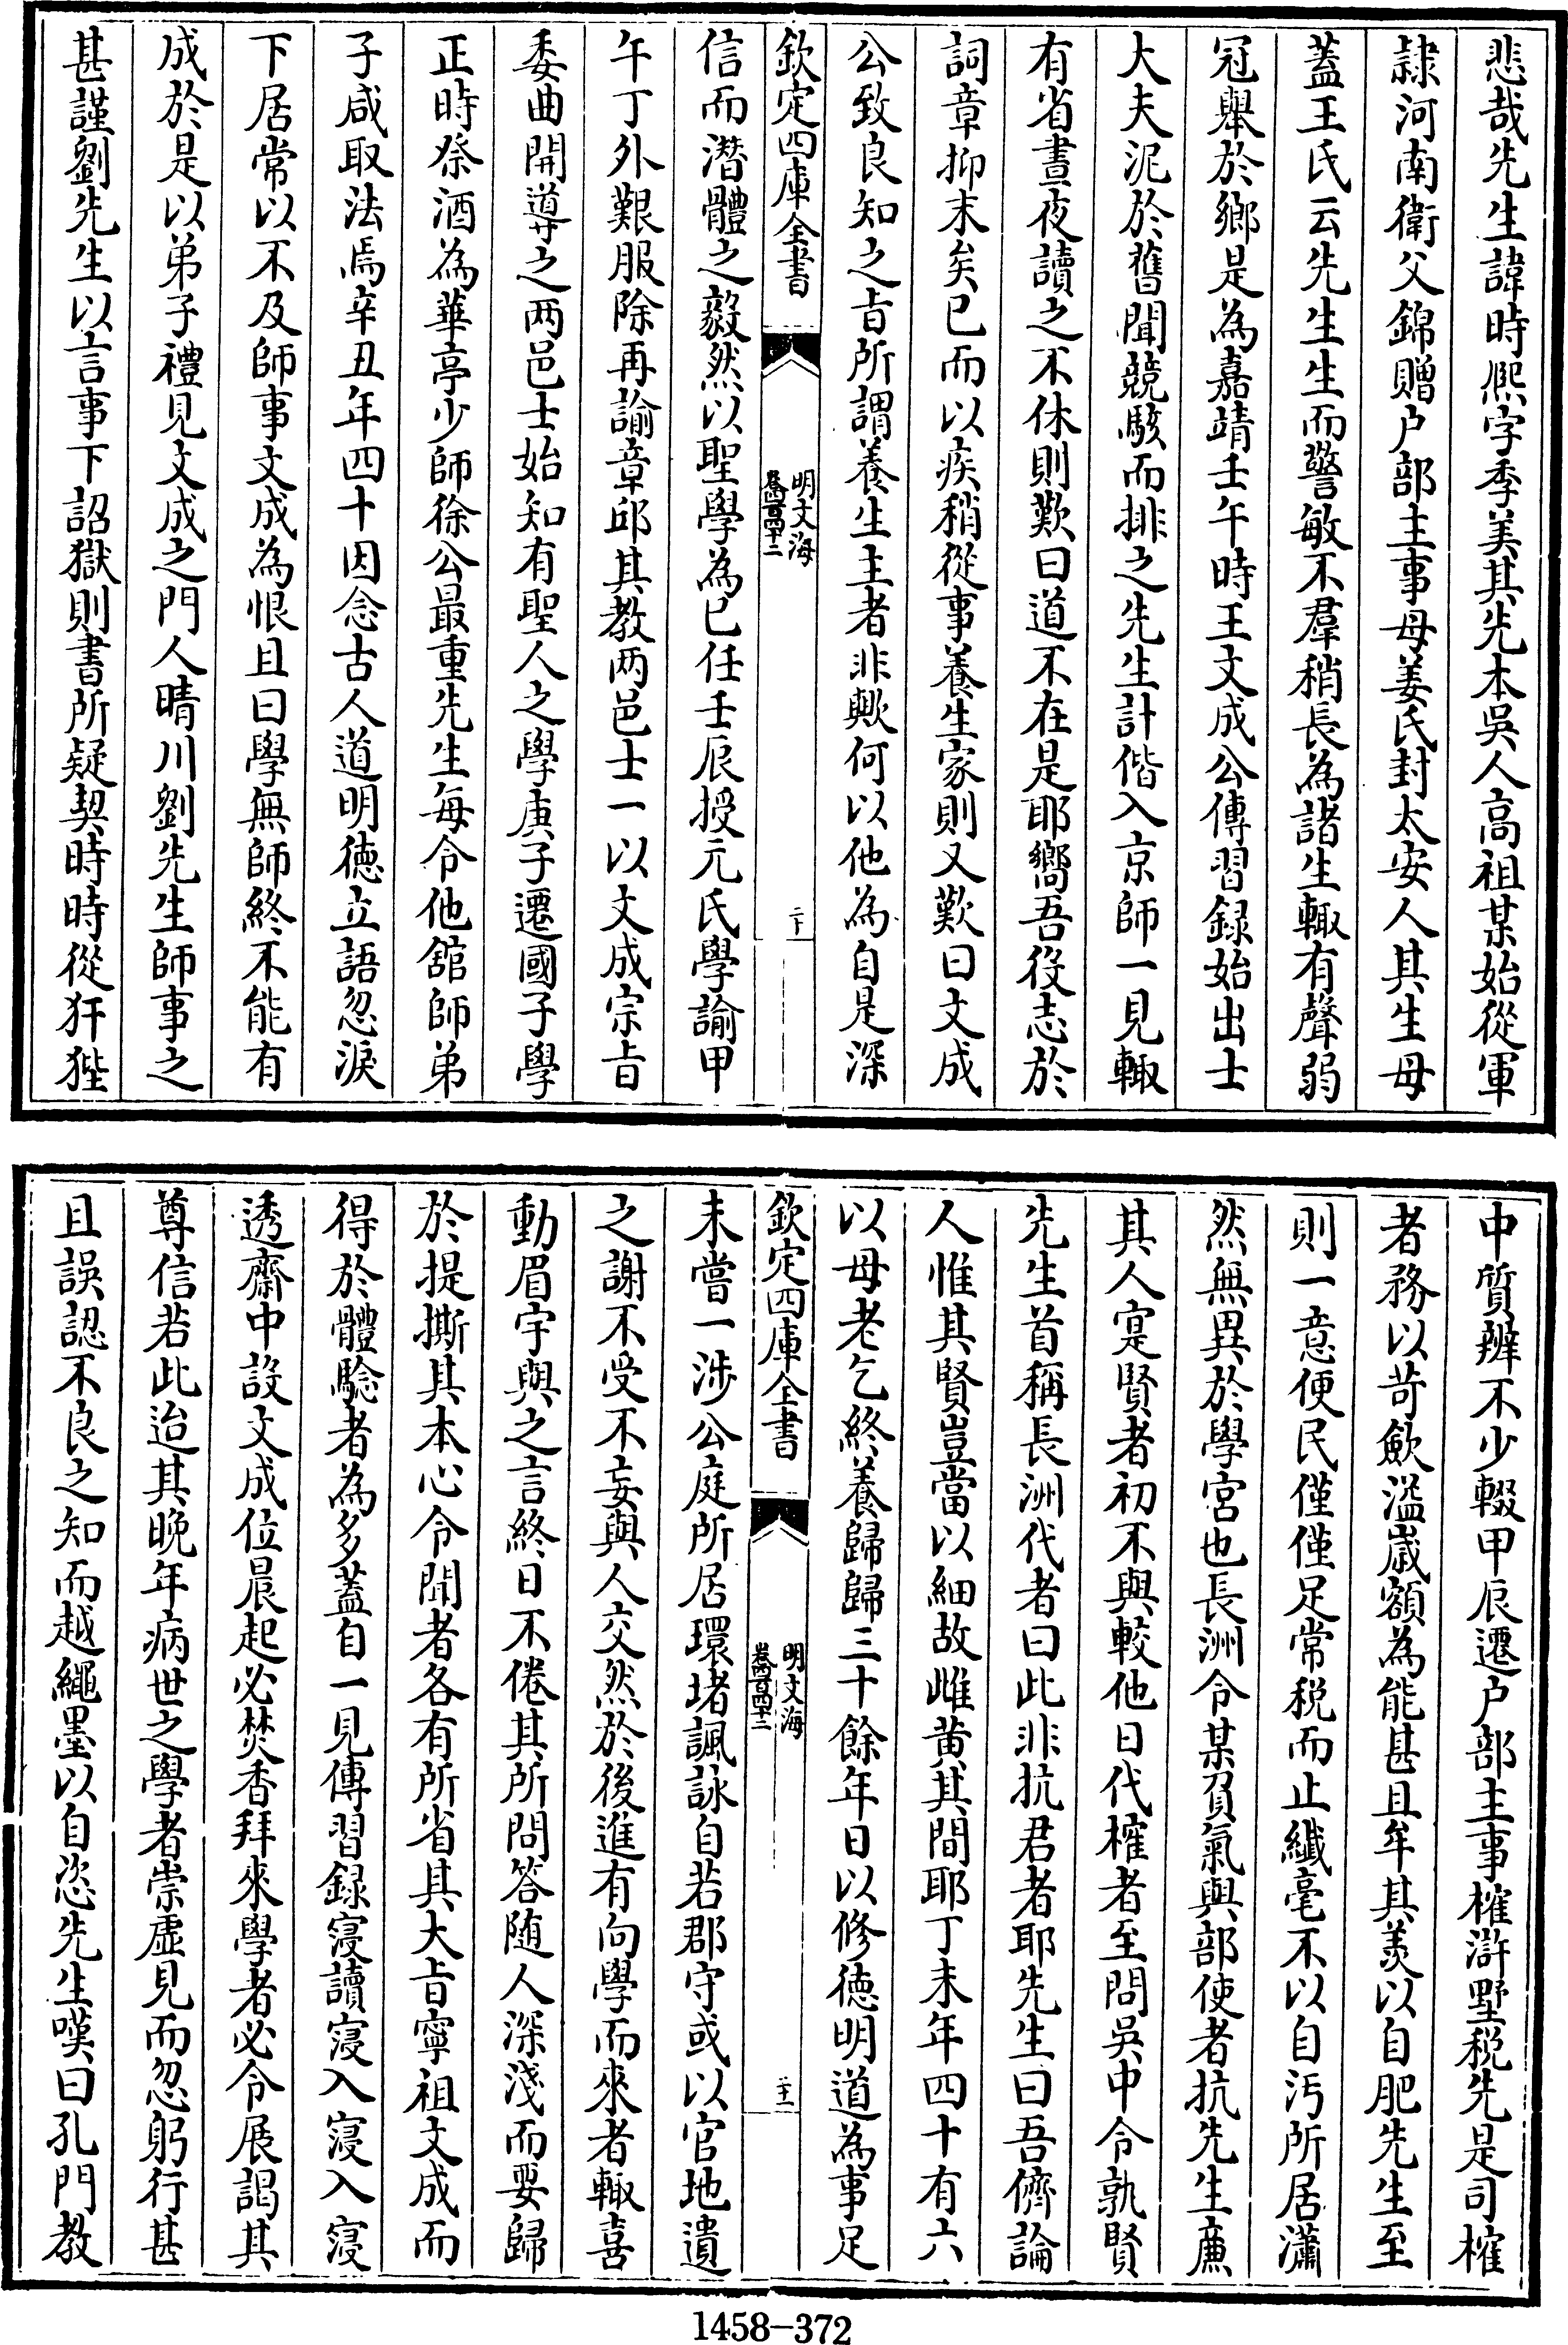 悲哉先生諱時熙字季美其先本吳人高祖某始從軍
隷河南衛父錦贈户部主事母姜氏封太安人其生母
蓋王氏云先生生而警敏不羣稍長為諸生輙有聲弱
冠舉於鄉是為嘉靖壬午時王文成公傳習録始出士
大夫泥於舊聞競駭而排之先生計偕入京師一見輙
有省晝夜讀之不休則歎曰道不在是耶嚮吾役志於
詞章抑末矣已而以疾稍從事養生家則又歎曰文成
公致良知之㫖所謂養生主者非歟何以他為自是深
欽定四庫全書
明文海
卷四百四十二
二十
信而潛體之毅然以聖學為已任壬辰授元氏學諭甲
午丁外艱服除再諭章邱其教两邑士一以文成宗㫖
委曲開導之两邑士始知有聖人之學庚子遷國子學
正時祭酒為華亭少師徐公最重先生每令他舘師弟
子咸取法焉辛丑年四十因念古人道明徳立語忽淚
下居常以不及師事文成為恨且曰學無師終不能有
成於是以弟子禮見文成之門人晴川劉先生師事之
甚謹劉先生以言事下詔獄則書所疑契時時從犴狴
中質辨不少輟甲辰遷户部主事榷滸墅税先是司榷
者務以苛歛溢歳額為能甚且牟其羡以自肥先生至
則一意便民僅僅足常税而止纎毫不以自汚所居瀟
然無異於學宫也長洲令某負氣與部使者抗先生亷
其人寔賢者初不與較他日代榷者至問吳中令孰賢
先生首稱長洲代者曰此非抗君者耶先生曰吾儕論
人惟其賢豈當以細故雌黄其間耶丁未年四十有六
以母老乞終養歸歸三十餘年日以修徳明道為事足
欽定四庫全書
明文海
卷四百四十二
二十一
未嘗一涉公庭所居環堵諷詠自若郡守或以官地遺
之謝不受不妄與人交然於後進有向學而來者輙喜
動眉宇與之言終日不倦其所問答随人深淺而要歸
於提撕其本心令聞者各有所省其大㫖寧祖文成而
得於體驗者為多蓋自一見傳習録寖讀寖入寖入寖
透齋中設文成位晨起必焚香拜來學者必令展謁其
尊信若此迨其晚年病世之學者崇虛見而忽躬行甚
且誤認不良之知而越繩墨以自恣先生嘆曰孔門教
1458-372